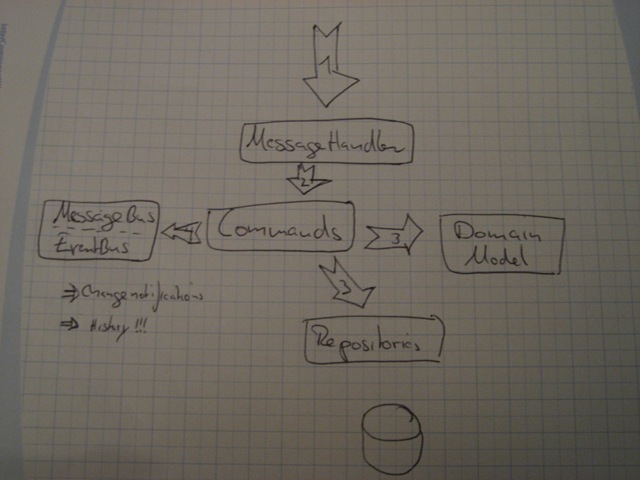 1
MessageHandler
2
MessageBus
EventBus
4
Commands
3
Domain
Model
⇒ Changenotifications
⇒ History!!!
3
Repositories